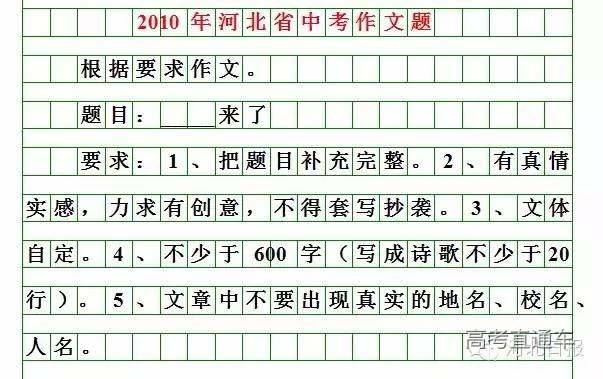 2010年河北省中考作文题
根据要求作文。
题目：_____来了
要求：1、把题目补充完整。2、有真情
实感，力求有创意，不得套写抄袭。3、文体
自定。4、不少于600字（写成诗歌不少于20
行）。5、文章中不要出现真实的地名、校名、
人名。
高考直通车
河北日报